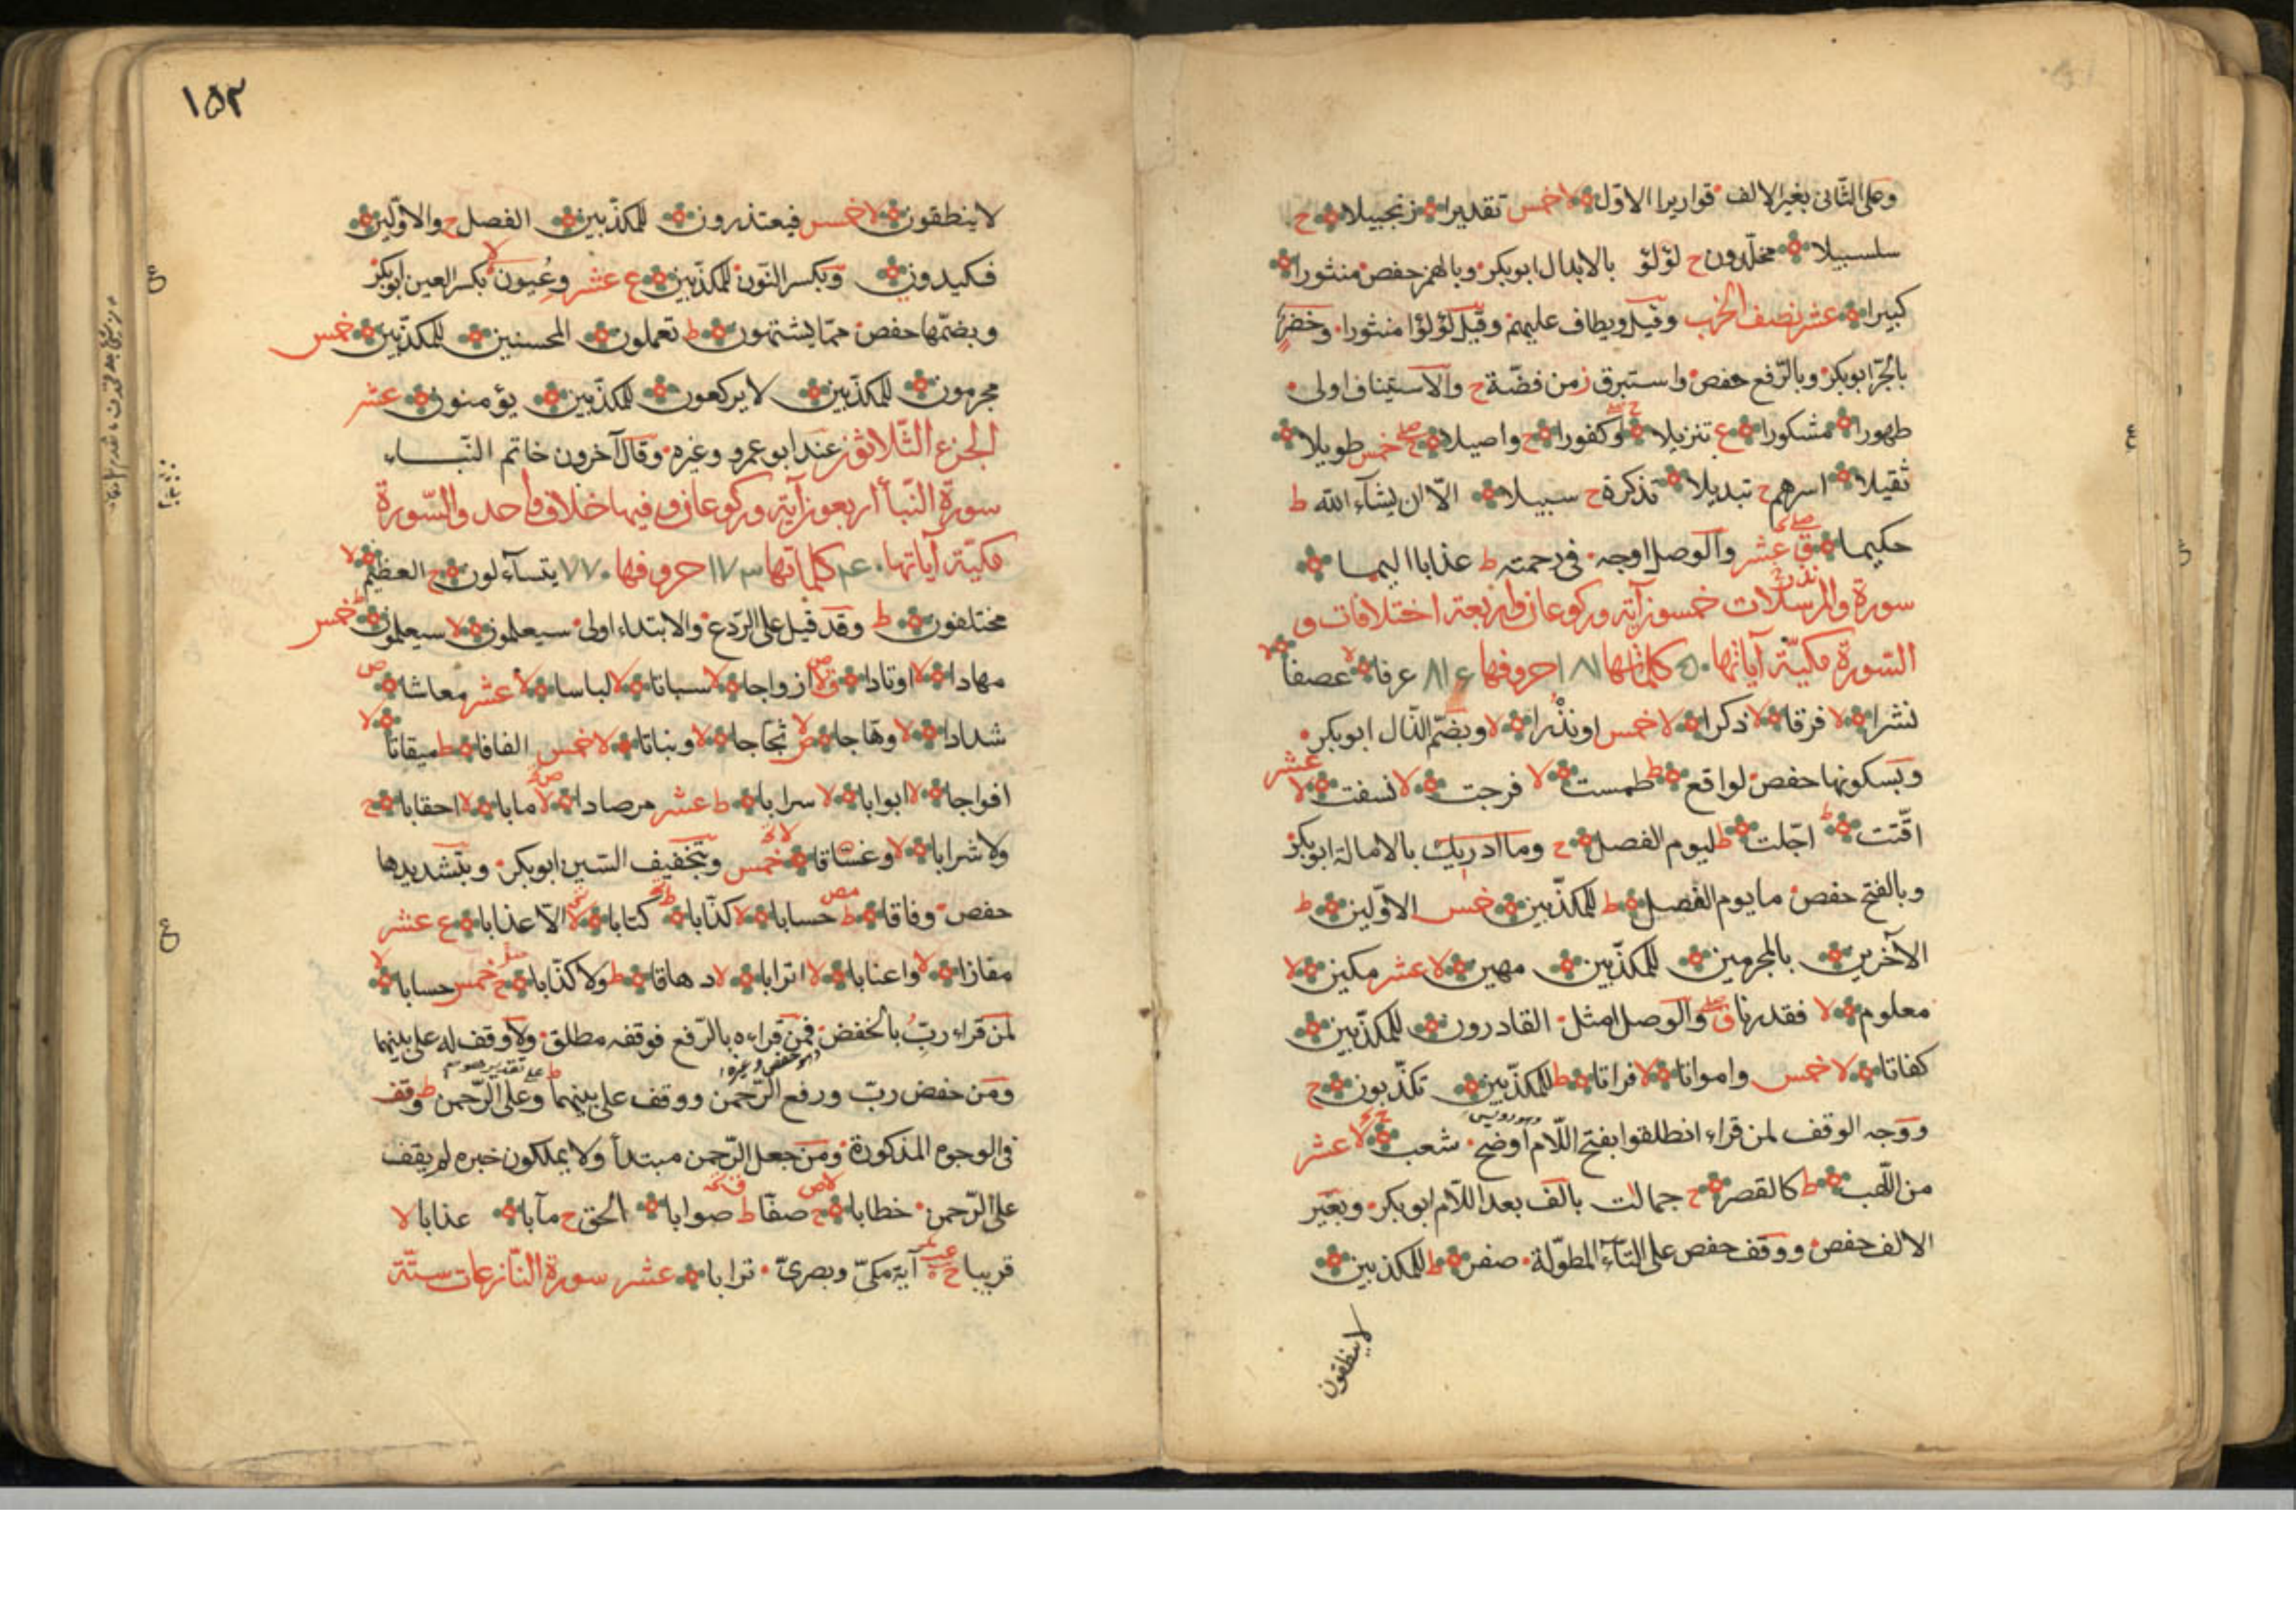 وعلى الثّانى بغير الالف قواريرا الاوّل لا خمس تقديرا زنجبيلا ح
سلسبيلا مخلّدون ح لؤلؤ بالابدال ابوبكر وبالهمز حفص منثورا
كبيرا عشر نصف الحزب وقيل ويطاف عليهم وقيل لؤلؤا منثورا وخضر
بالجرّ ابوبكر وبالرّفع حفص واستبرق ز من فضّة ح والاستيناف اولى
طهورا مشكورا ع تنزيلا او كفورا ح واصيلا خمس طويلا
ثقيلا اسرهم ح تبديلا تذكرة ح سبيلا الّا ان يشآء الله ط
حكيما ق عشر والوصل اوجه فى رحمته ط عذابا اليما
سورة والمرسلات خمسون آية وركوعان واربعة اختلافات و
السّورة مكيّة آياتها ۵۰ كلماتها ۱۸۱ حروفها ۸۱۶ عرفا لا عصفا لا
نشرا لا فرقا لا ذكرا لا خمس او نذرا لا وبضمّ الذّال ابوبكر
وبسكونها حفص لواقع ط طمست لا فرجت لا نسفت لا عشر
اقّتت ط اجّلت ط ليوم الفصل ح وما ادريك بالامالة ابوبكر
وبالفتح حفص ما يوم الفصل ط للمكذّبين خمس الاوّلين ط
الآخرين بالمجرمين للمكذّبين مهين لا عشر مكين لا
معلوم لا فقدرنا ق والوصل امثل القادرون للمكذّبين
كفاتا لا خمس وامواتا لا فراتا ط للمكذّبين تكذّبون ح
ووجه الوقف لمن قراء انطلقوا بفتح اللّام اوضح شعب لا عشر
من اللّهب ط كالقصر ح جمالت بالف بعد اللّام ابوبكر وبغير
الالف حفص ووقف حفص على التّآء المطوّلة صفر ط للمكذبين
لاينطقون
۱۵۲
لاينطقون لا خمس فيعتذرون للمكذّبين الفصل ح والاوّلين
فكيدون وبكسر النّون للمكذّبين ع عشر وعيون لا بكسر العين ابوبكر
وبضمّها حفص ممّا يشتهون ط تعملون المحسنين للمكذّبين خمس
مجرمون للمكذّبين لايركعون للمكذّبين يؤمنون عشر
الجزء الثّلاثون عند ابو عمرو وغيره وقال آخرون خاتم النّبأ
سورة النّبأ اربعون آية وركوعان وفيها خلاف واحد والسّورة
مكيّة آياتها ۴۰ كلماتها ۱۷۳ حروفها ۷۷۰ يتسآءلون ح العظيم لا
مختلفون ط وقد قيل على الرّدع والابتداء اولى سيعلمون لا سيعلمون خمس
مهادا لا اوتادا ازواجا لا سباتا لا لباسا لا عشر معاشا ص
شدادا لا وهّاجا ص ثجّاجا لا ونباتا لا خمس الفافا ط ميقاتا لا
افواجا لا ابوابا لا سرابا ط عشر مرصادا لا مابا لا احقابا ح
ولا شرابا لا وغسّاقا خمس وبتخفيف السّين ابوبكر وبتشديدها
حفص وفاقا ط حسابا لا كذّابا ط كتابا لا الّا عذابا ع عشر
مفازا لا واعنابا لا اترابا لا دهاقا ط ولا كذّابا ح خمس حسابا لا
لمن قراء ربّ بالخفض فمن قراءه بالرّفع فوقفه مطلق ولا وقف له على بينهما
ومن خفض ربّ ورفع الرّحمن ووقف على بينهما وعلى الرّحمن ط وقف
فى الوجوه المذكورة ومن جعل الرّحمن مبتدأ ولا يملكون خبره لم يقف
على الرّحمن خطابا ح صفّا ط صوابا الحق ح مآبا عذابا لا
قريبا ح آية مكىّ وبصرىّ ترابا عشر سورة النّازعات ستّة